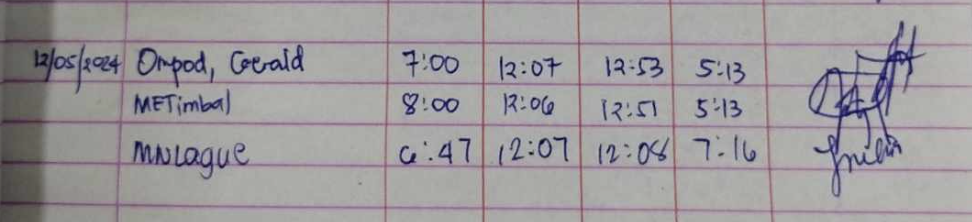 12/05/2024 Ompod, Gerald 7:00 12:07 12:53 5:13
METimbal 8:00 12:06 12:51 5:13
MNLague 6:47 12:07 12:08 7:16